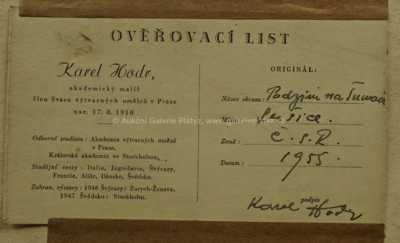 OVĚŘOVACÍ LIST
Karel Hodr,
akademický malíř
člen Svazu výtvarných umělců v Praze
nar. 17. 8. 1910
Odborné studium: Akademie výtvarných umění
v Praze,
Královská akademie ve Stockholmu,
Studijní cesty: Italie, Jugoslavie, Švýcary,
Francie, Alžír, Dánsko, Švédsko.
Zahran. výstavy: 1946 Švýcary: Zurych-Ženeva.
1947 Švédsko: Stockholm.
ORIGINÁL:
Název obrazu: Podzim na Šumavě
Místo: Sušice.
Země: Č.S.R.
Datum: 1955.
podpis
Karel Hodr